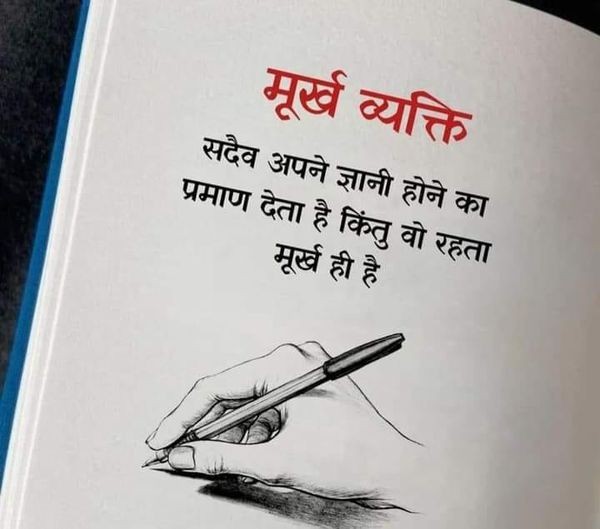 मूर्ख व्यक्ति
सदैव अपने ज्ञानी होने का
प्रमाण देता है किंतु वो रहता
मूर्ख ही है